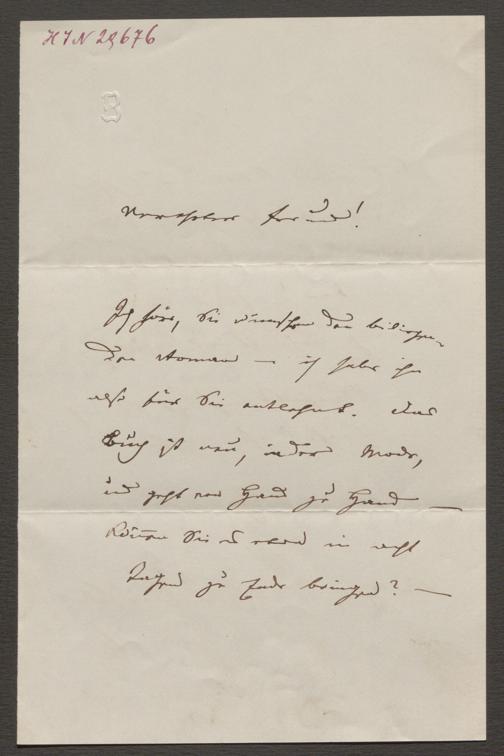 HIN 29676
B
Verehrter Freund!
Ich höre, Sie wünschen den
den Roman — ich habe ihn
also für Sie entlehnt. Das
Buch ist neu, in der Mode,
und geht von Hand zu Hand —
Können Sie in acht
Tagen zu Ende bringen? —